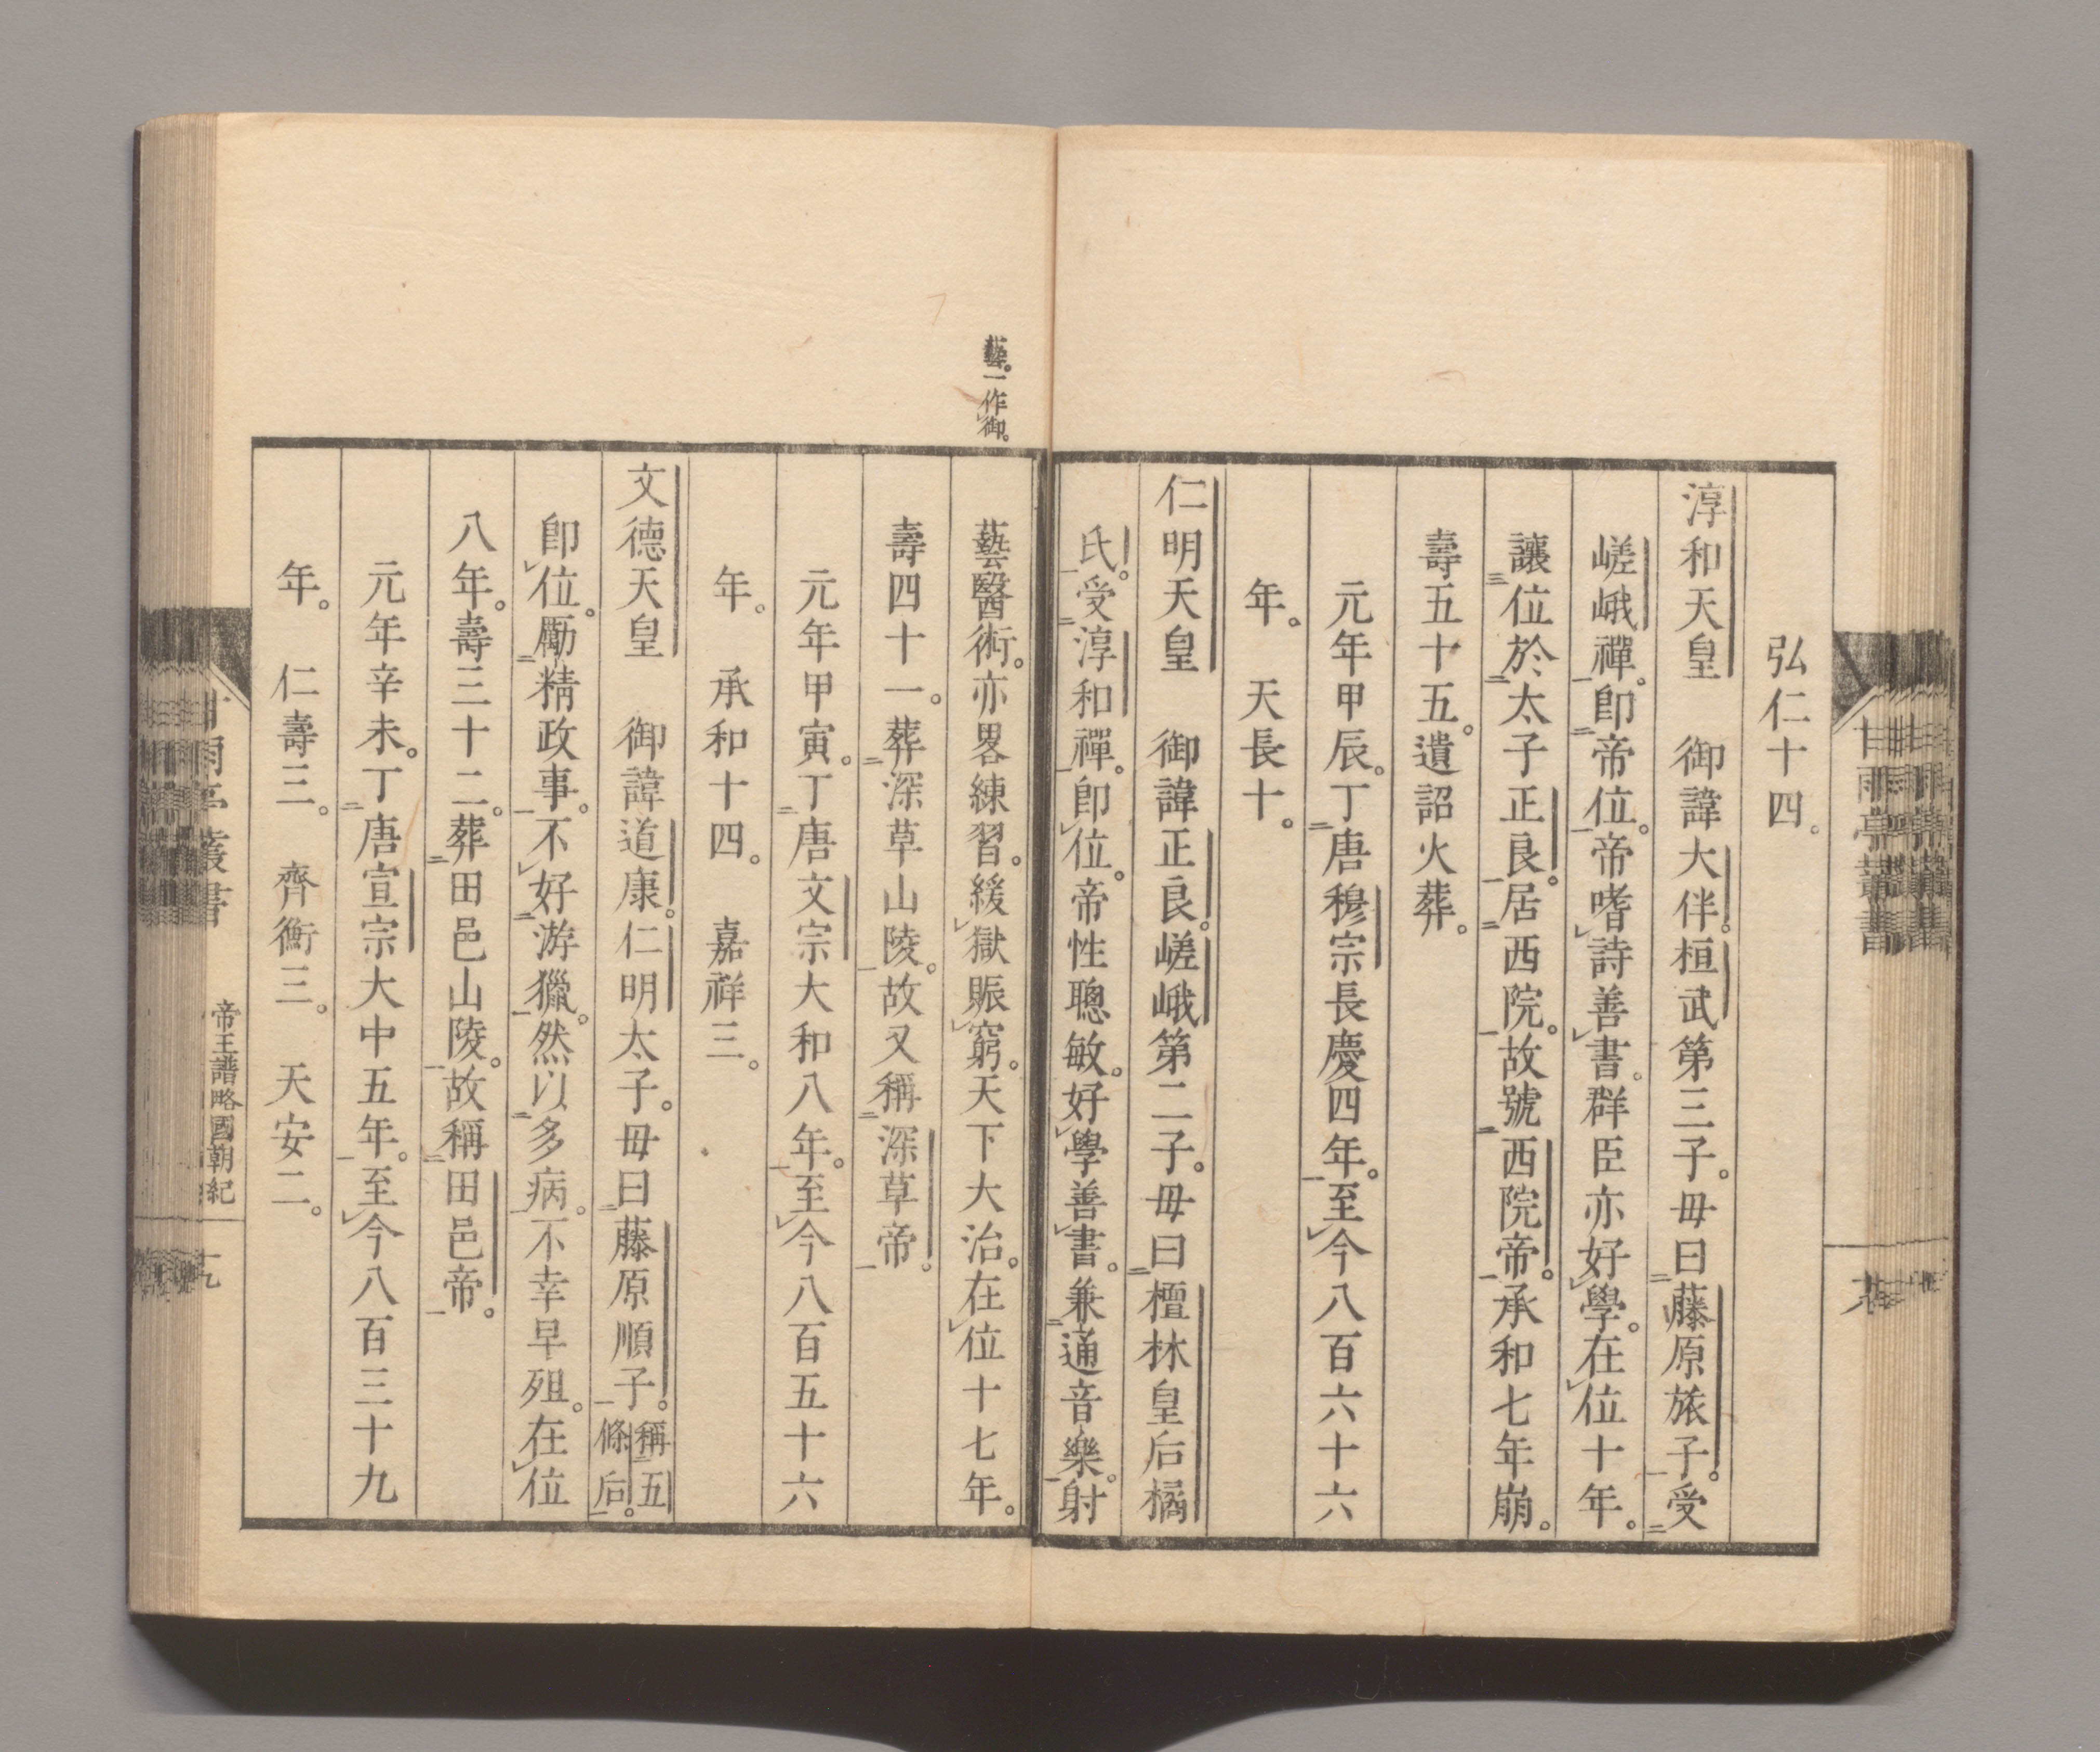 弘仁十四。
淳和天皇　御諱大伴。桓武第三子。毋曰藤原旅子。受
嵯峨禪。卽帝位。帝嗜詩善書。群臣亦好學。在位十年。
讓位於太子正良。居西院。故號西院帝。承和七年崩。
壽五十五。遺詔火葬。
元年甲辰。丁唐穆宗長慶四年。至今八百六十六
年。　天長十。
仁明天皇　御諱正良。嵯峨第二子。毋曰檀林皇后橘
氏。受淳和禪。卽位。帝性聰敏。好學善書。兼通音樂。射
藝。一作御。
藝醫術。亦畧練習。緩獄賑窮。天下大治。在位十七年。
壽四十一。葬深草山陵。故又稱深草帝。
元年甲寅。丁唐文宗大和八年。至今八百五十六
年。　承和十四。　嘉祥三。
文德天皇　御諱道康。仁明太子。毋曰藤原順子。稱五
條后。
卽位。勵精政事。不好游獵。然以多病。不幸早殂。在位
八年。壽三十二。葬田邑山陵。故稱田邑帝。
元年辛未。丁唐宣宗大中五年。至今八百三十九
年。　仁壽三。　齊衡三。　天安二。
甘雨亭叢書
帝王譜略國朝紀
甘雨亭叢書